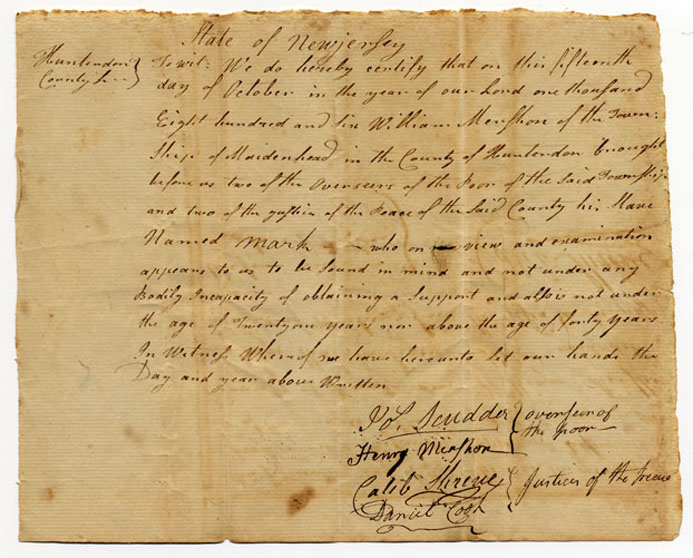 State of Newjersey
Huntendon
County Ss
To wit: We do hereby certify that on this fifteenth
day of October in the year of our Lord one thousand
Eight hundred and six William Mershon of the Town:
Ship of Maidenhead in the County of Huntendon brought
before us two of the Overseers of the Poor of the Said Township
and two of the Justices of the Peace of the Said County his Slave
Named Mark who on view and examination
appears to us to be Sound in mind and not under any
Bodily Incapacity of obtaining a Support and also is not under
the age of Twentyone years nor above the age of forty years
In Witness Whereof we have hereunto Set our hands the
Day and year above Written
Jos. Scudder
Henry Mershon
overseers of
the poor
Caleb Shreve
Daniel Cook
Justices of the peace